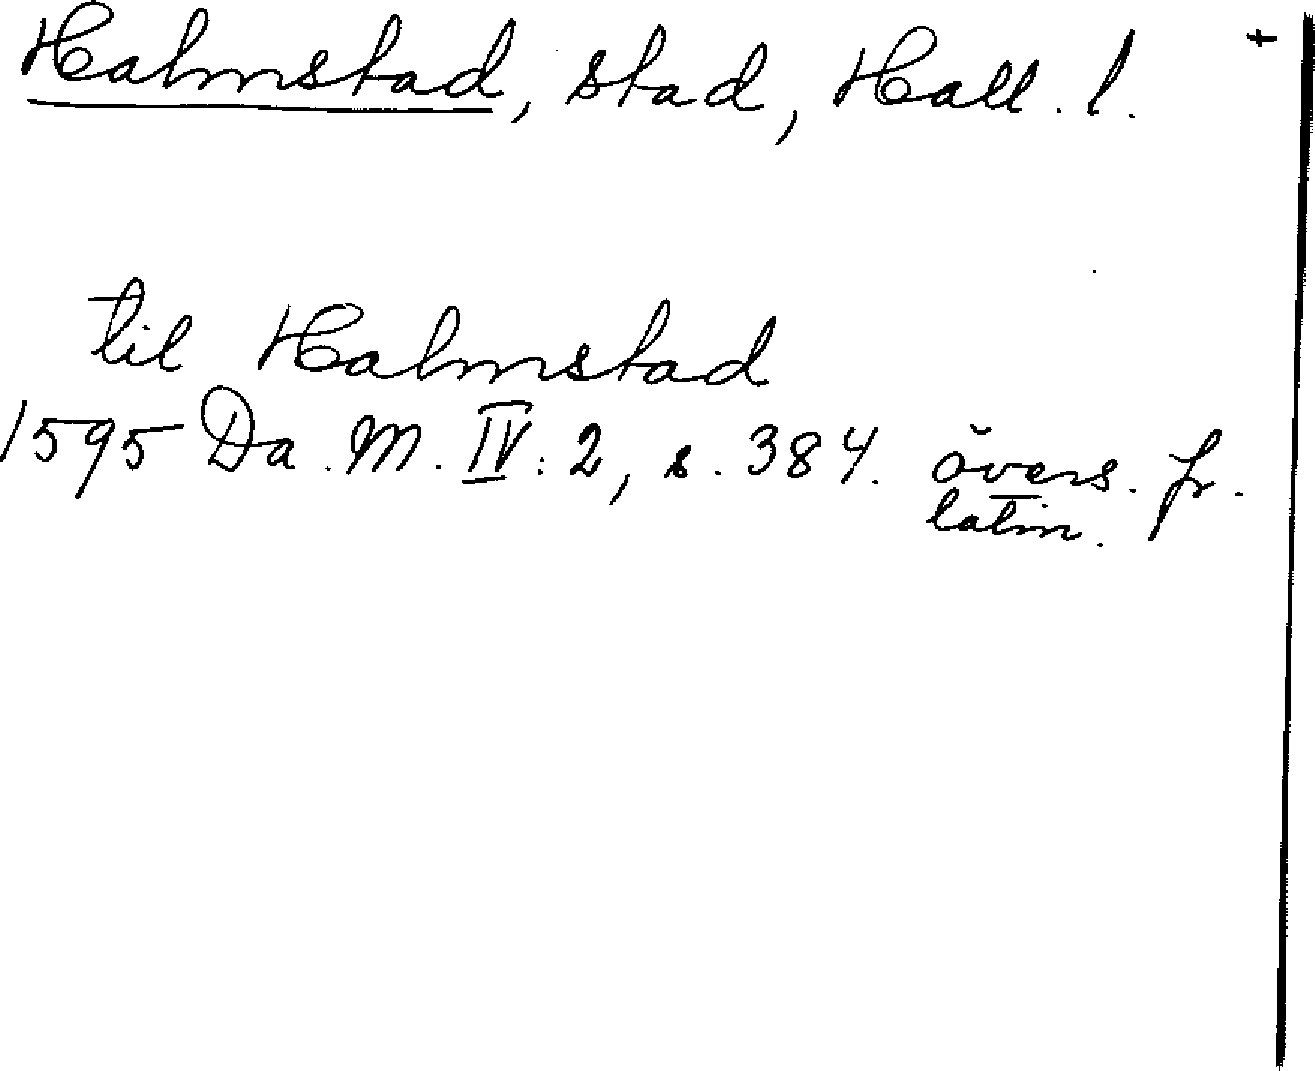 Halmstad, stad, Hall. l. +
til Halmstad
1595 Da. M. IV: 2, s. 384. övers. fr.
latin.